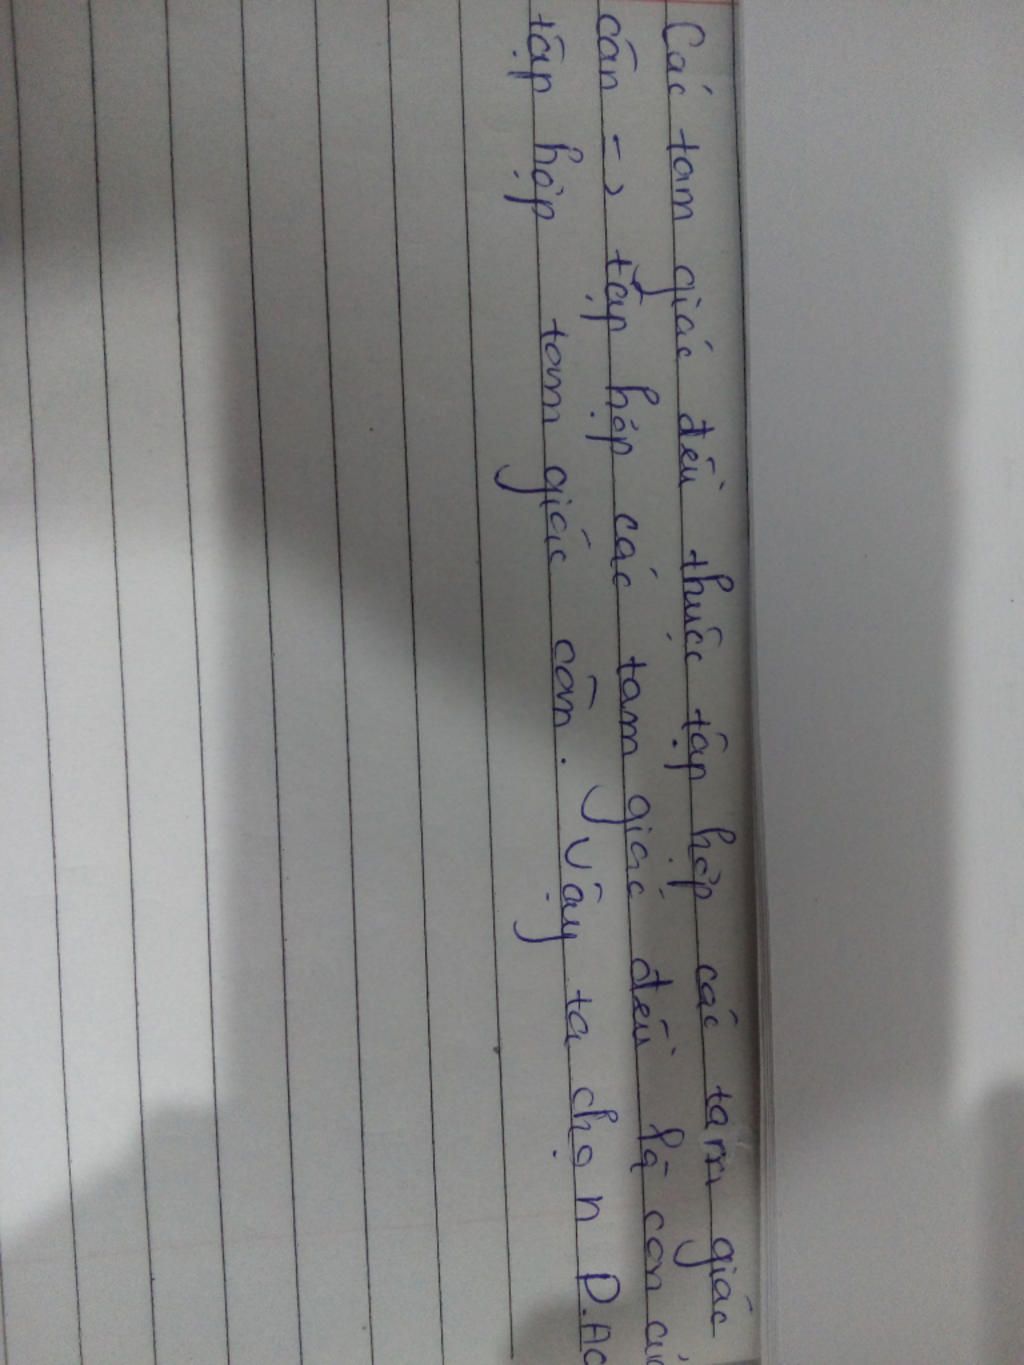 Các tam giác đều thuộc tập hợp các tam giác
cân -> tập hợp các tam giác đều là con củ
tập hợp tam giác cân. Vậy ta chọn D.AC